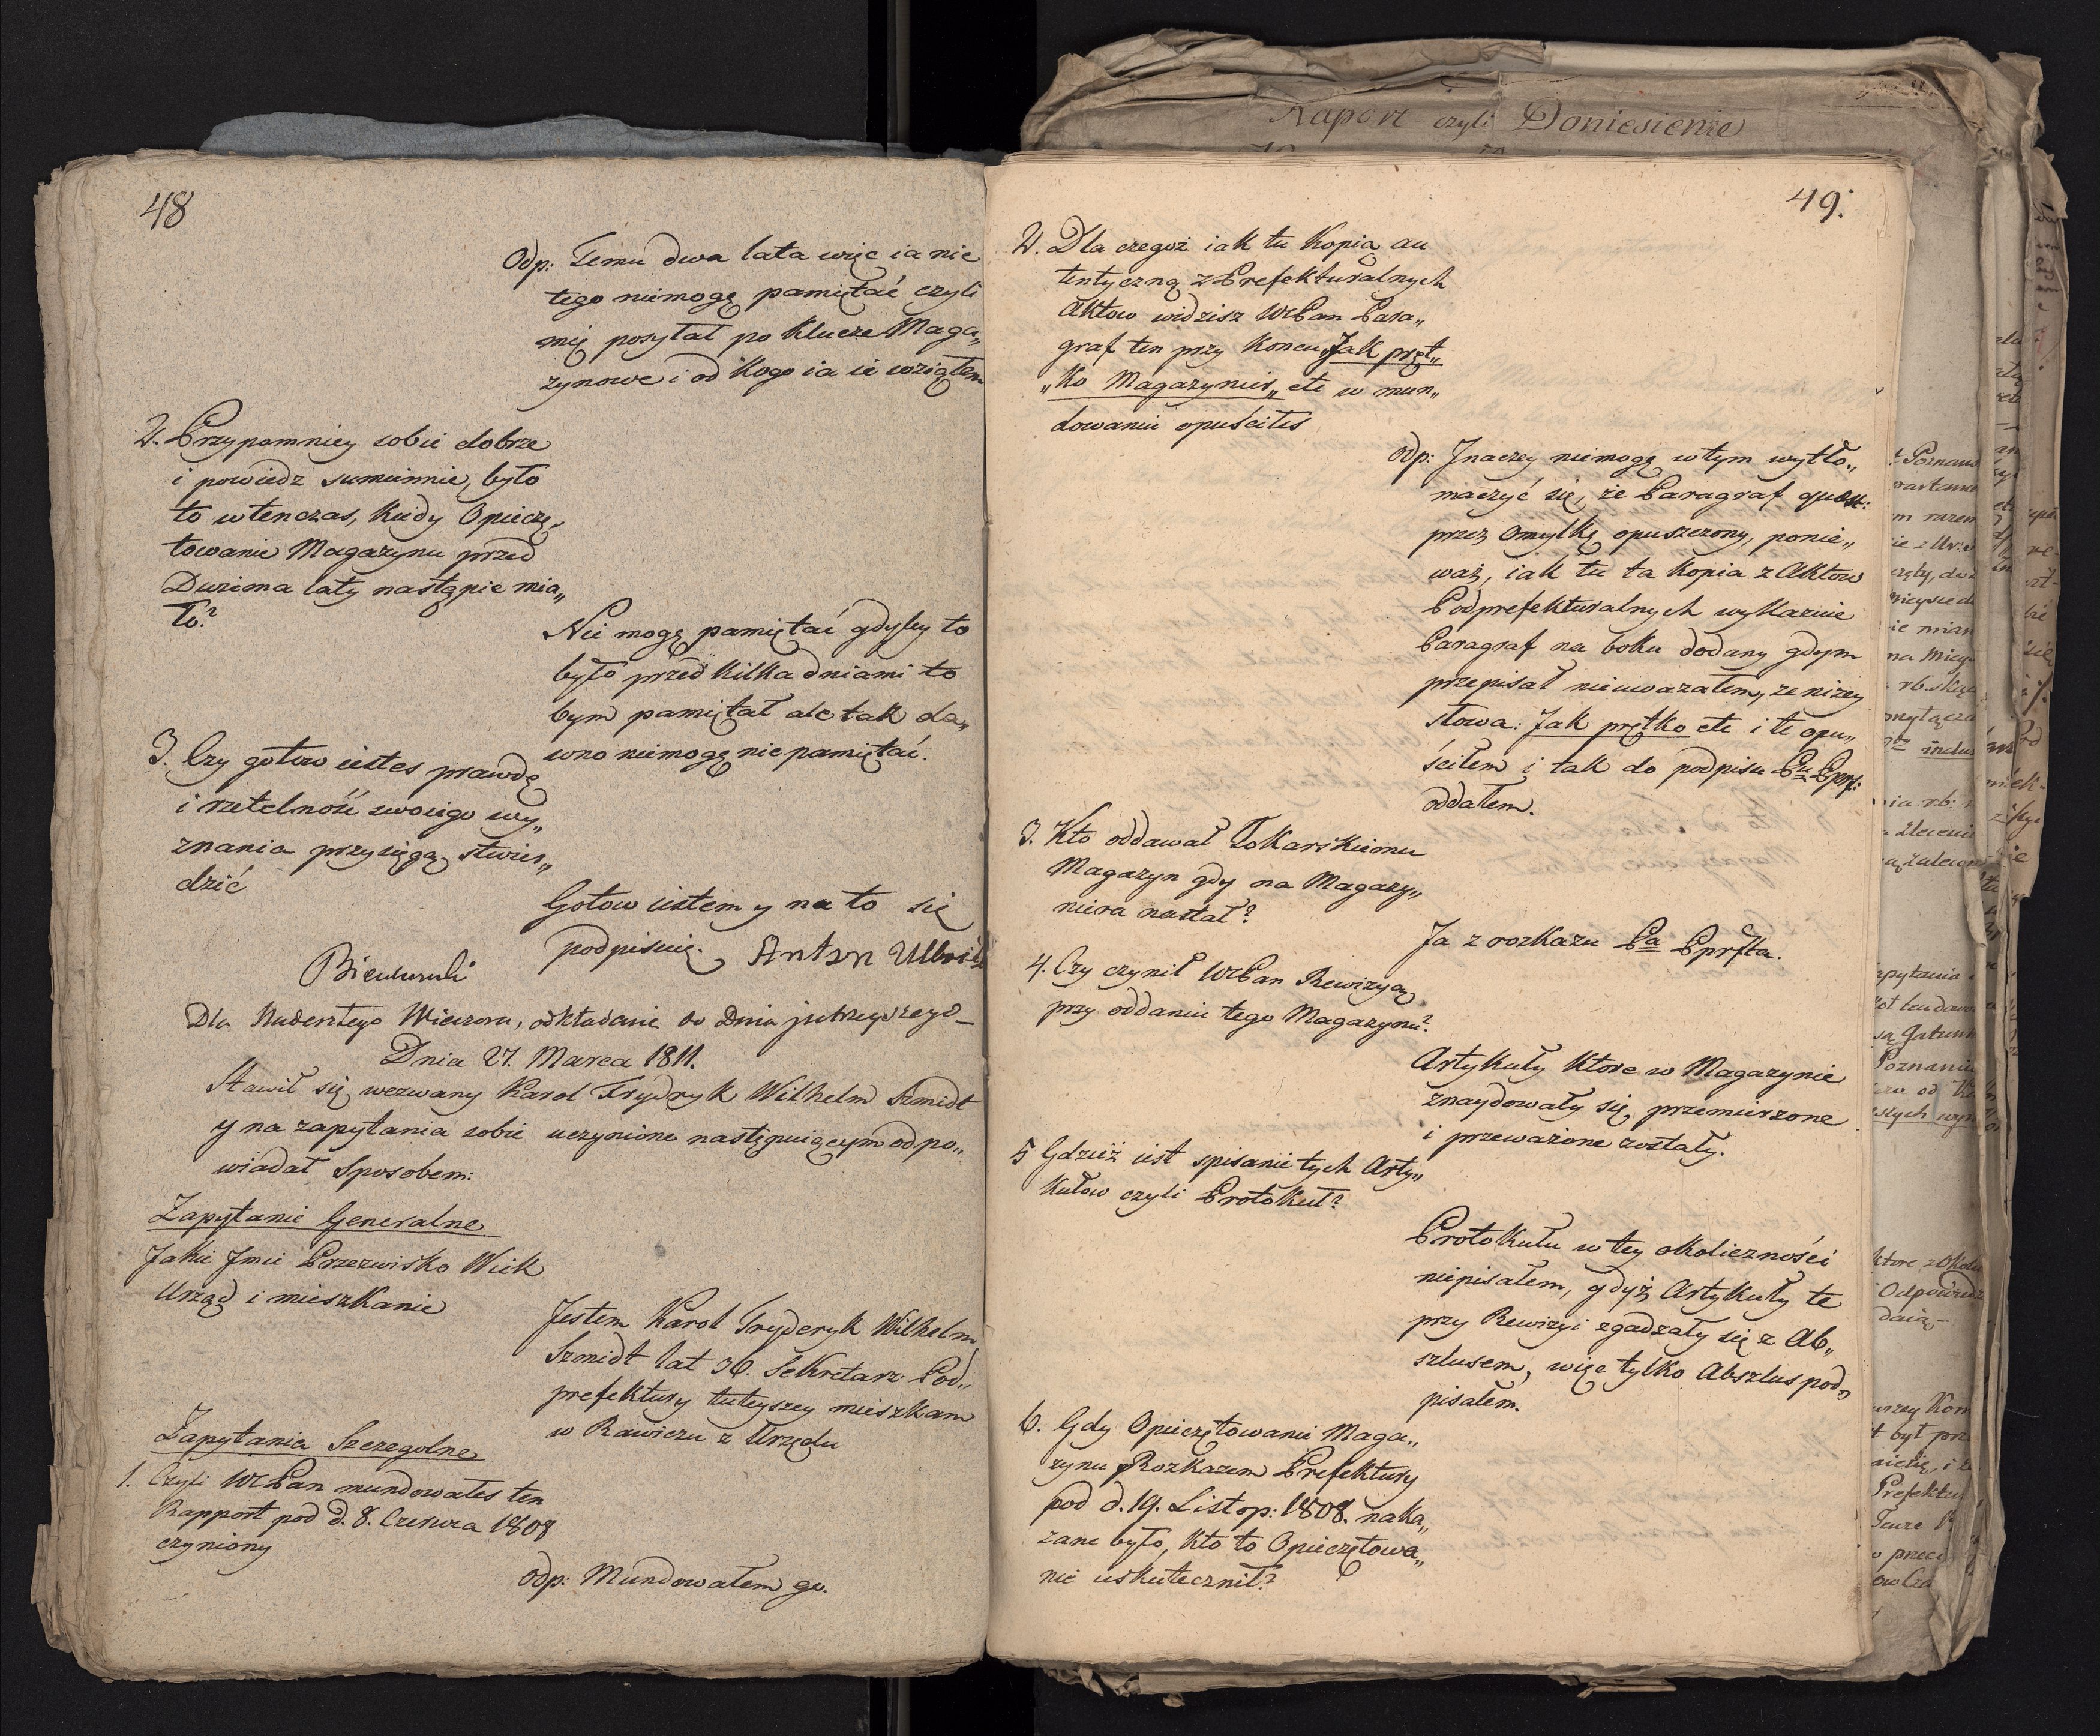 48
Odp: Temu dwa lata więc ia nie
tego niemogę pamiętać czyli
mię posyłał po klucze Maga„
zynowe i od kogo ia ie wziąłem
2. Przypomniey sobie dobrze
i powiedz sumiennie, było
to wtenczas, kiedy Opieczę„
towanie Magazynu przed
Dwiema laty nastąpić mia„
ło?
Nie mogę pamiętać gdyby to
było przed kilka dniami to
bym pamiętał ale tak da„
wno niemogę nie pamiętać.
3. Czy gotow iestes prawdę
i rzetelność swoiego wy„
znania przysięgą stwier„
dzić
Gotow iestem y na to się
podpisuię. Anton
Dla Nadeszłego Wieczora, odkładanie do Dnia jutrzeyszego
Dnia 27. Marca 1811.
Stawił się wezwany Karol Frydryk Wilhelm Szmidt
y na zapytania sobie uczynione następuiącym odpo„
wiadał Sposobem:
Zapytanie Generalne
Jakie Jmie Przezwisko Wiek
Urząd i mieszkanie
Jestem Karol Fryderyk Wilhelm
Szmidt lat 36. Sekretarz Pod„
prefektury tuteyszey mieszkam
w Rawiczu z Urzędu
Zapytania Szczegolne
1. Czyli WPan mundowałes ten
Rapport pod d. 8. Czerwca 1808
czyniony
Odp: Mundowałem go.
49.
2. Dla czegoż iak tu Kopią au
tentyczną z Prefekturalnych
Aktow widzisz WPan Para„
graf ten przy koncu Jak pręt„
„ko Magazynier„ etc w mun„
dowaniu opuściłes
Odp: Jnaczey niemogę w tym wytło„
maczyć się, że Paragraf quest:
przez omyłkę opuszczony, ponie„
waż, iak tu ta kopia z Aktow
Podprefekturalnych wykazuie
Paragraf na boku dodany gdym
przepisał nieuwazałem, ze nizey
słowa: Jak prętko etc i te opu„
ściłem i tak do podpisu Pu Pprf:
oddałem.
3. Kto oddawał Tokarskiemu
Magazyn gdy na Magazy„
niera nastał?
Ja z rozkazu Pa Pprfta.
4. Czy czynił WPan Rewizyą
przy oddaniu tego Magazynu?
Artykuły ktore w Magazynie
znaydowały się przemierzone
i przeważone zostały.
5 Gdzież iest spisanie tych Arty„
kułow czyli Protokuł?
Protokułu w tey okoliczności
niepisałem, gdyż Artykuły te
przy Rewizyi zgadzały się z Ab„
szlusem, więc tylko Abszlus pod„
pisałem.
6. Gdy Opieczętowanie Maga„
zynu Rozkazem Prefektury
pod d. 19. Listop: 1808. naka„
zane było, kto to Opieczętowa„
nie uskutecznił?
Raport czyli Doniesienie